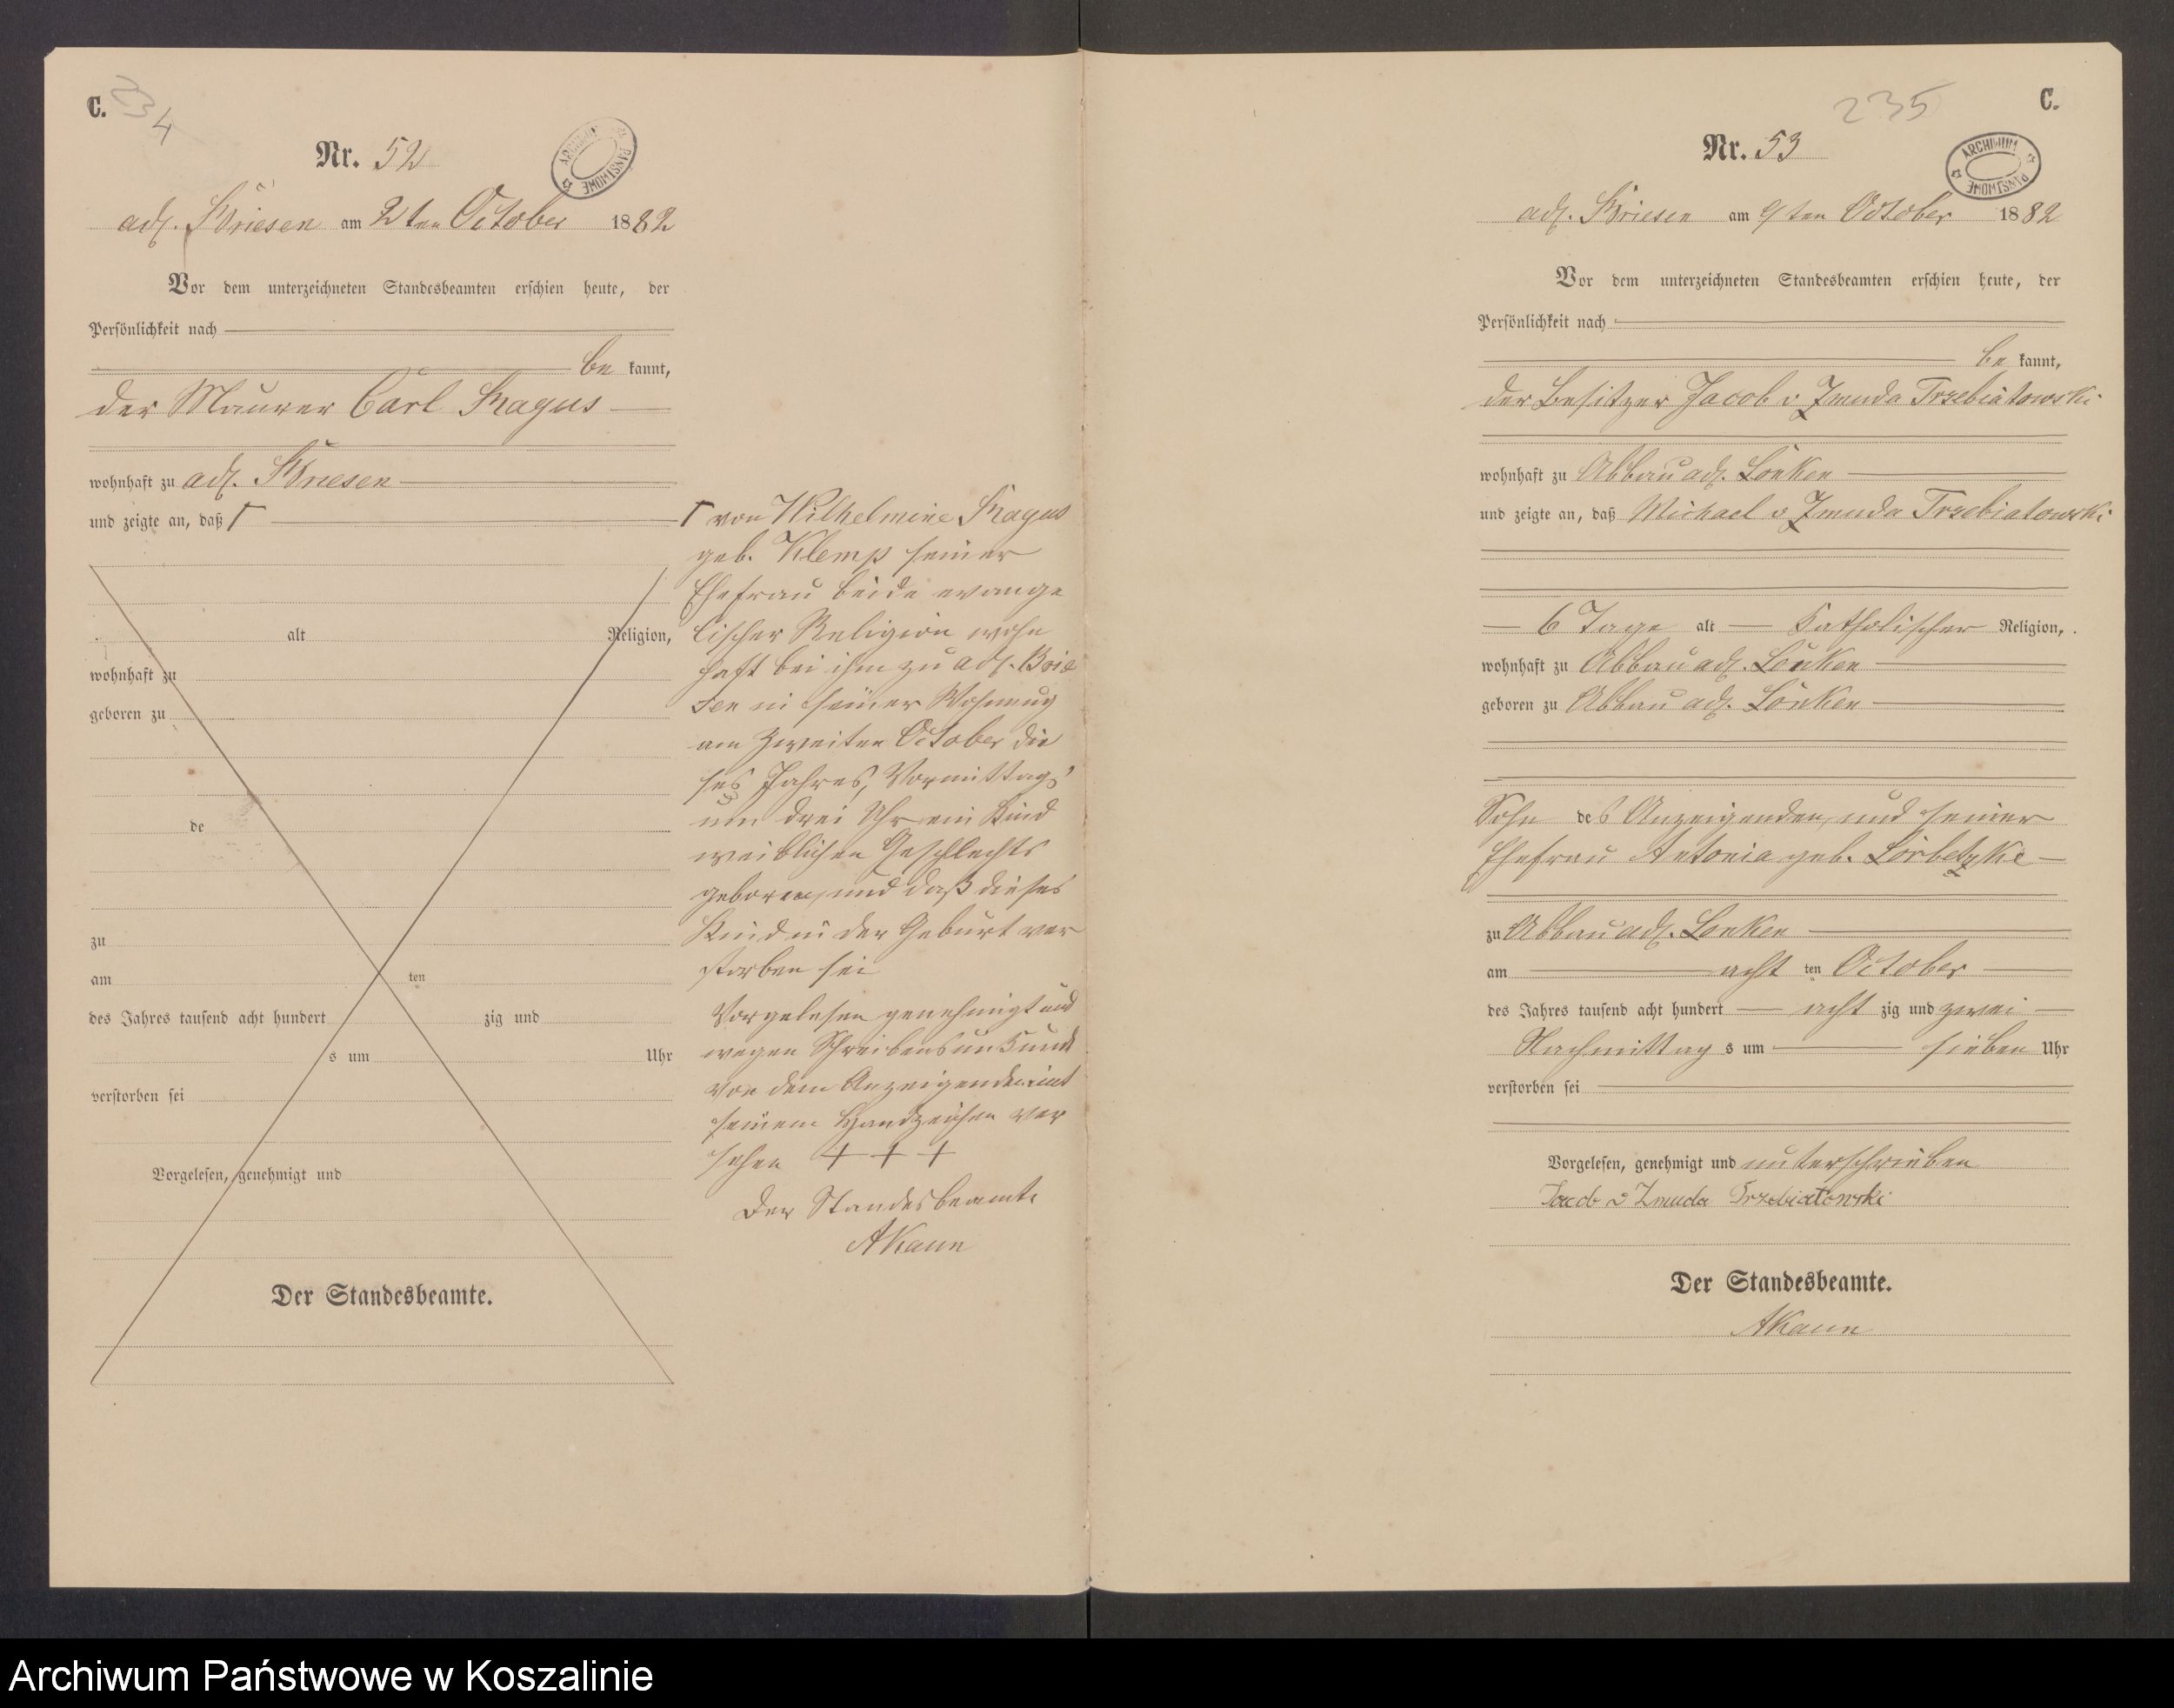 C.
234
Nr. 52
ARCHIWUM PAŃSTWOWE
adl. Briesen am 2ten October 1882
Vor dem unterzeichneten Standesbeamten erschien heute, der
Persönlichkeit nach
be kannt,
der Maurer Carl Magus
wohnhaft zu adl. Briesen
und zeigte an, daß Γ
alt Religion,
wohnhaft zu
geboren zu
de
zu
am ten
des Jahres tausend acht hundert zig und
s um Uhr
verstorben sei
Vorgelesen, genehmigt und
Der Standesbeamte.
Γ von Wilhelmine Magus
geb. Klemp seiner
Ehefrau beide evange
lischer Religion wohn
haft bei ihm zu adl. Brie
sen in seiner Wohnung
am zweiten October die
ses Jahres, Vormittags
um drei Uhr ein Kind
weiblichen Geschlechts
geboren, und daß dieses
Kind in der Geburt ver
storben sei
Vorgelesen genehmigt und
wegen Schreibensunkunde
von dem Anzeigenden mit
seinem Handzeichen ver
sehen + + +
Der Standesbeamte
AKaun
235
C.
Nr. 53
ARCHIWUM PAŃSTWOWE
adl. Briesen am 9ten October 1882
Vor dem unterzeichneten Standesbeamten erschien heute, der
Persönlichkeit nach
be kannt,
der Besitzer Jacob v Zmuda Trzebiatowski
wohnhaft zu Abbau adl. Lonken
und zeigte an, daß Michael v Zmuda Trzebiatowski
6 Tage alt Katholischer Religion,
wohnhaft zu Abbau adl. Lonken
geboren zu Abbau adl. Lonken
Sohn des Anzeigenden, und seiner
Ehefrau Antonia geb.
zu Abbau adl. Lonken
am acht ten October
des Jahres tausend acht hundert acht zig und zwei
Nachmittag s um sieben Uhr
verstorben sei
Vorgelesen, genehmigt und unterschrieben
Jacob v Zmuda Trzebiatowski
Der Standesbeamte.
AKaun
Archiwum Państwowe w Koszalinie